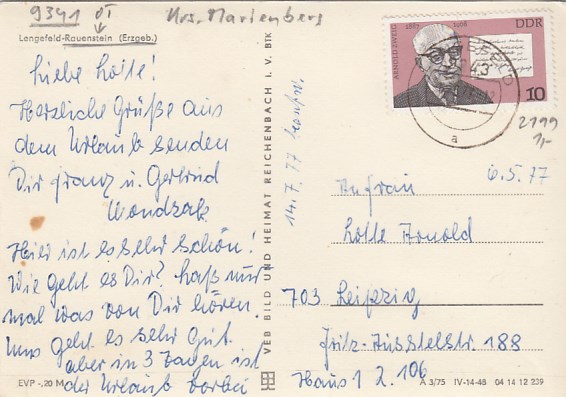 9341 OT
Krs. Marienberg
Lengefeld-Rauenstein (Erzgeb.)
Liebe Lotte!
Herzliche Grüße aus
dem Urlaub senden
Dir Franz u. Gertrud
Wondrak
Hier ist es sehr schön!
Wie geht es Dir? Laß nur
mal was von Dir hören.
Uns geht es sehr Gut
aber in 3 Tagen ist
der Urlaub vorbei
EVP -,20 M
VEB BILD UND HEIMAT REICHENBACH I. V. BTK
14.7.77
ARNOLD ZWEIG
1887 1968
DDR
10
43
a
2199
1,-
6.5.77
An Frau
Lotte Arnold
703 Leipzig
Fritz-Austelstr. 188
Haus 1 Z. 106
A 3/75 IV-14-48 04 14 12 239